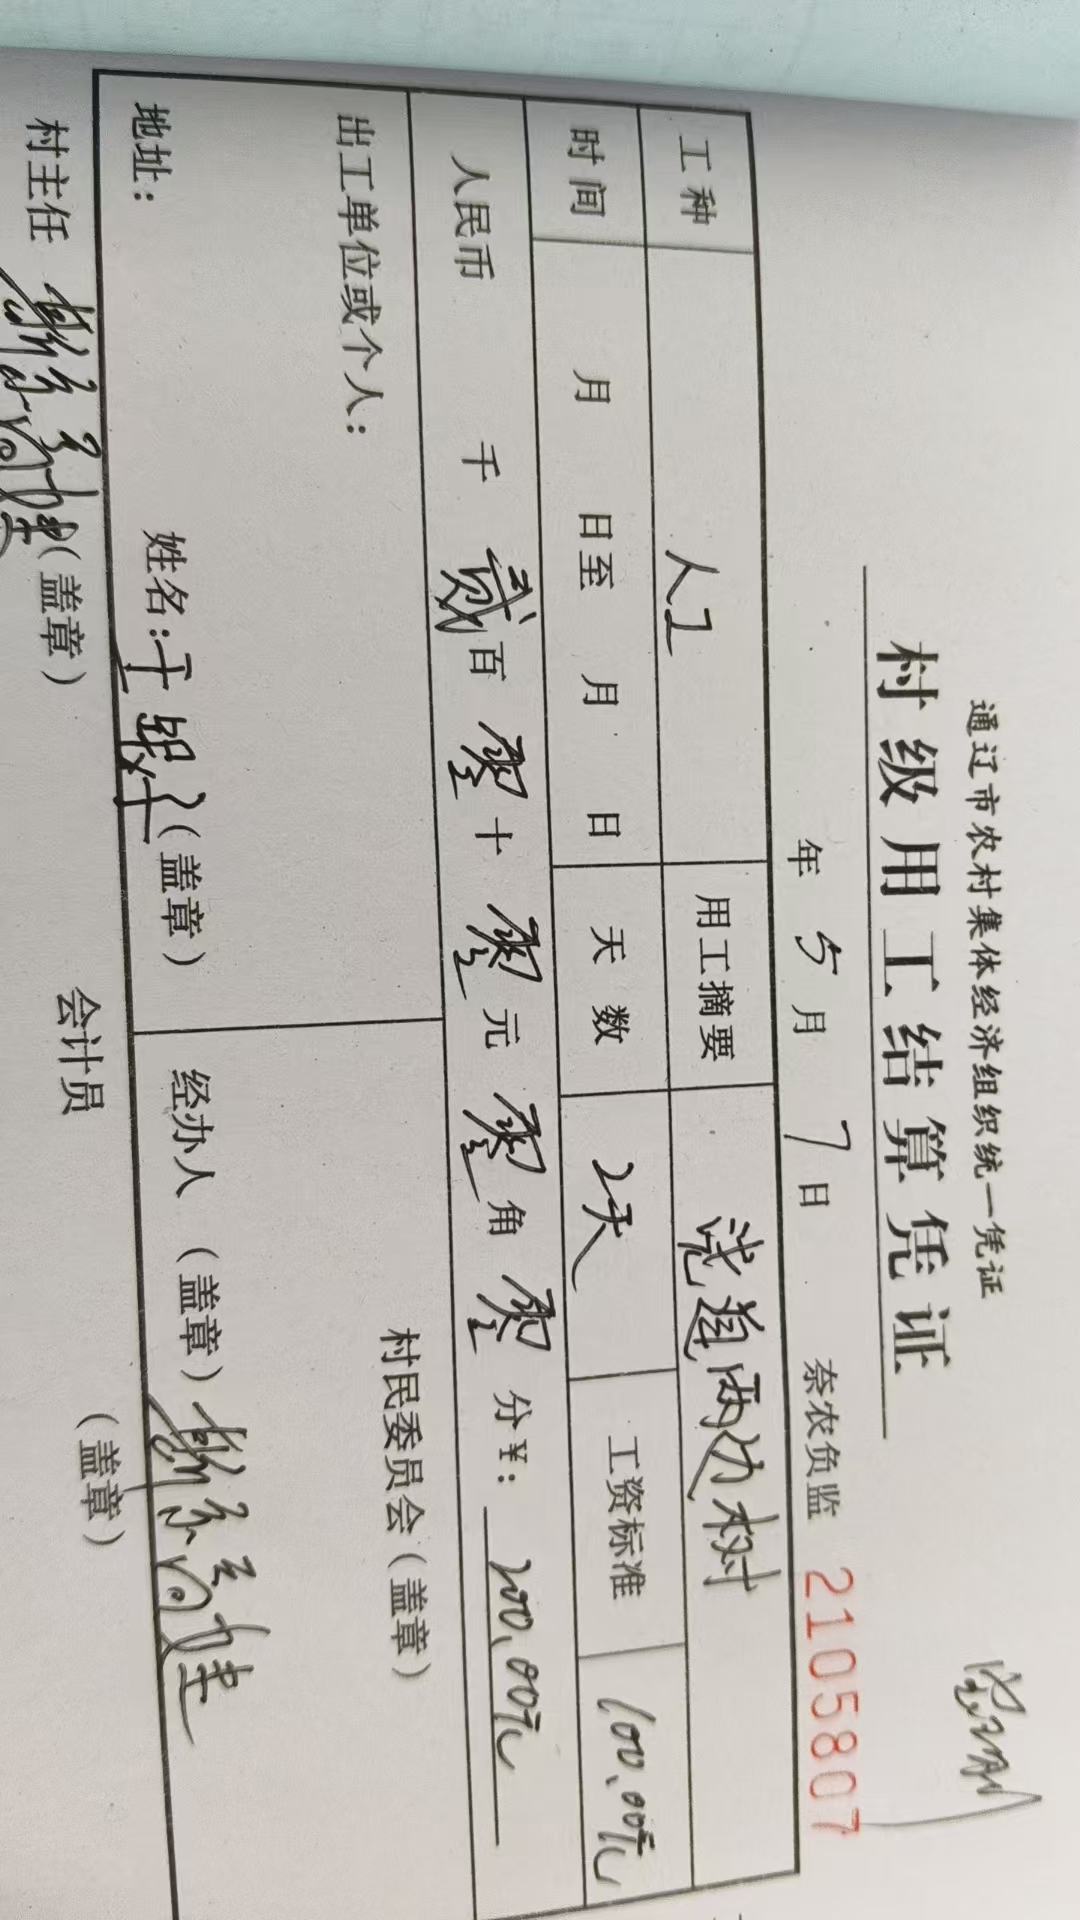 通辽市农村集体经济组织统一凭证
村级用工结算凭证
年 5月 7日 奈农负监 2105807
工种 人工 用工摘要 道两边树
时间 月 日至 月 日 天数 2天 工资标准 100.00元
人民币 千 贰百 零十 零元 零角 零分¥: 200.00元
出工单位或个人: 村民委员会(盖章)
地址: 姓名: (盖章) 经办人(盖章)
村主任 (盖章) 会计员 (盖章)